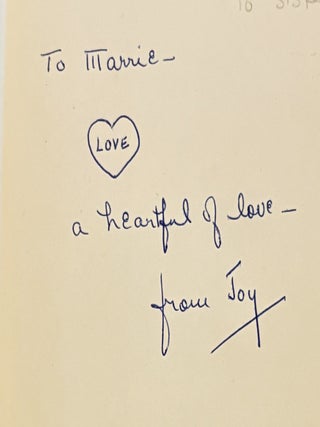 To Marrie –
LOVE
a heartful of love –
from Joy